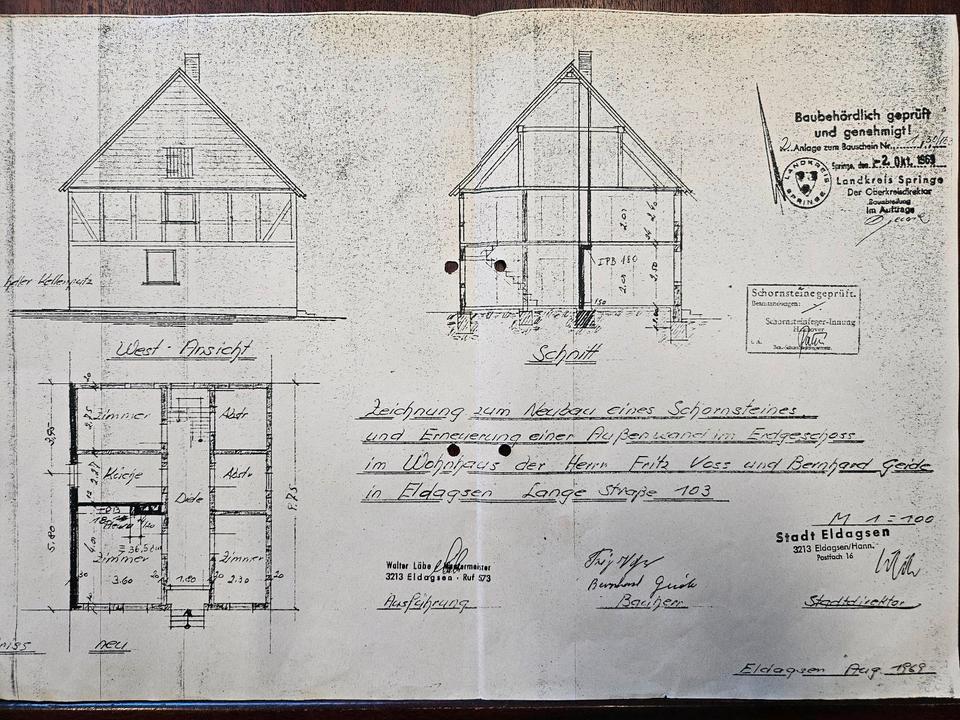 Baubehördlich geprüft
und genehmigt!
2. Anlage zum Bauschein Nr.
Springe, den -2. Okt. 1969
Landkreis Springe
Der Oberkreisdirektor
Bauabteilung
Im Auftrage
LANDKREIS SPRINGE
heller Kellenputz
2.01
2.40
IPB 180
2.01
2.50
150
Schornsteine geprüft.
Beanstandungen:
Schornsteinfeger-Innung
Hannover
West-Ansicht
Schnitt
Zimmer
Abstr
Küche
Abstr
Diele
Zimmer
Zimmer
2.75
5.80
4.01
36,5 cm
3.60
1.80
2.30
20
30
8.75
Zeichnung zum Neubau eines Schornsteines
und Erneuerung einer Außenwand im Erdgeschoss
im Wohnhaus der Herrn Fritz Voss und Bernhard Geide
in Eldagsen Lange Straße 103
M 1=100
Walter Löbe Maurermeister
3213 Eldagsen · Ruf 573
Ausführung
Bernhard Geide
Bauherr
Stadt Eldagsen
3213 Eldagsen/Hann.
Postfach 16
Stadtdirektor
neu
Eldagsen Aug 1969